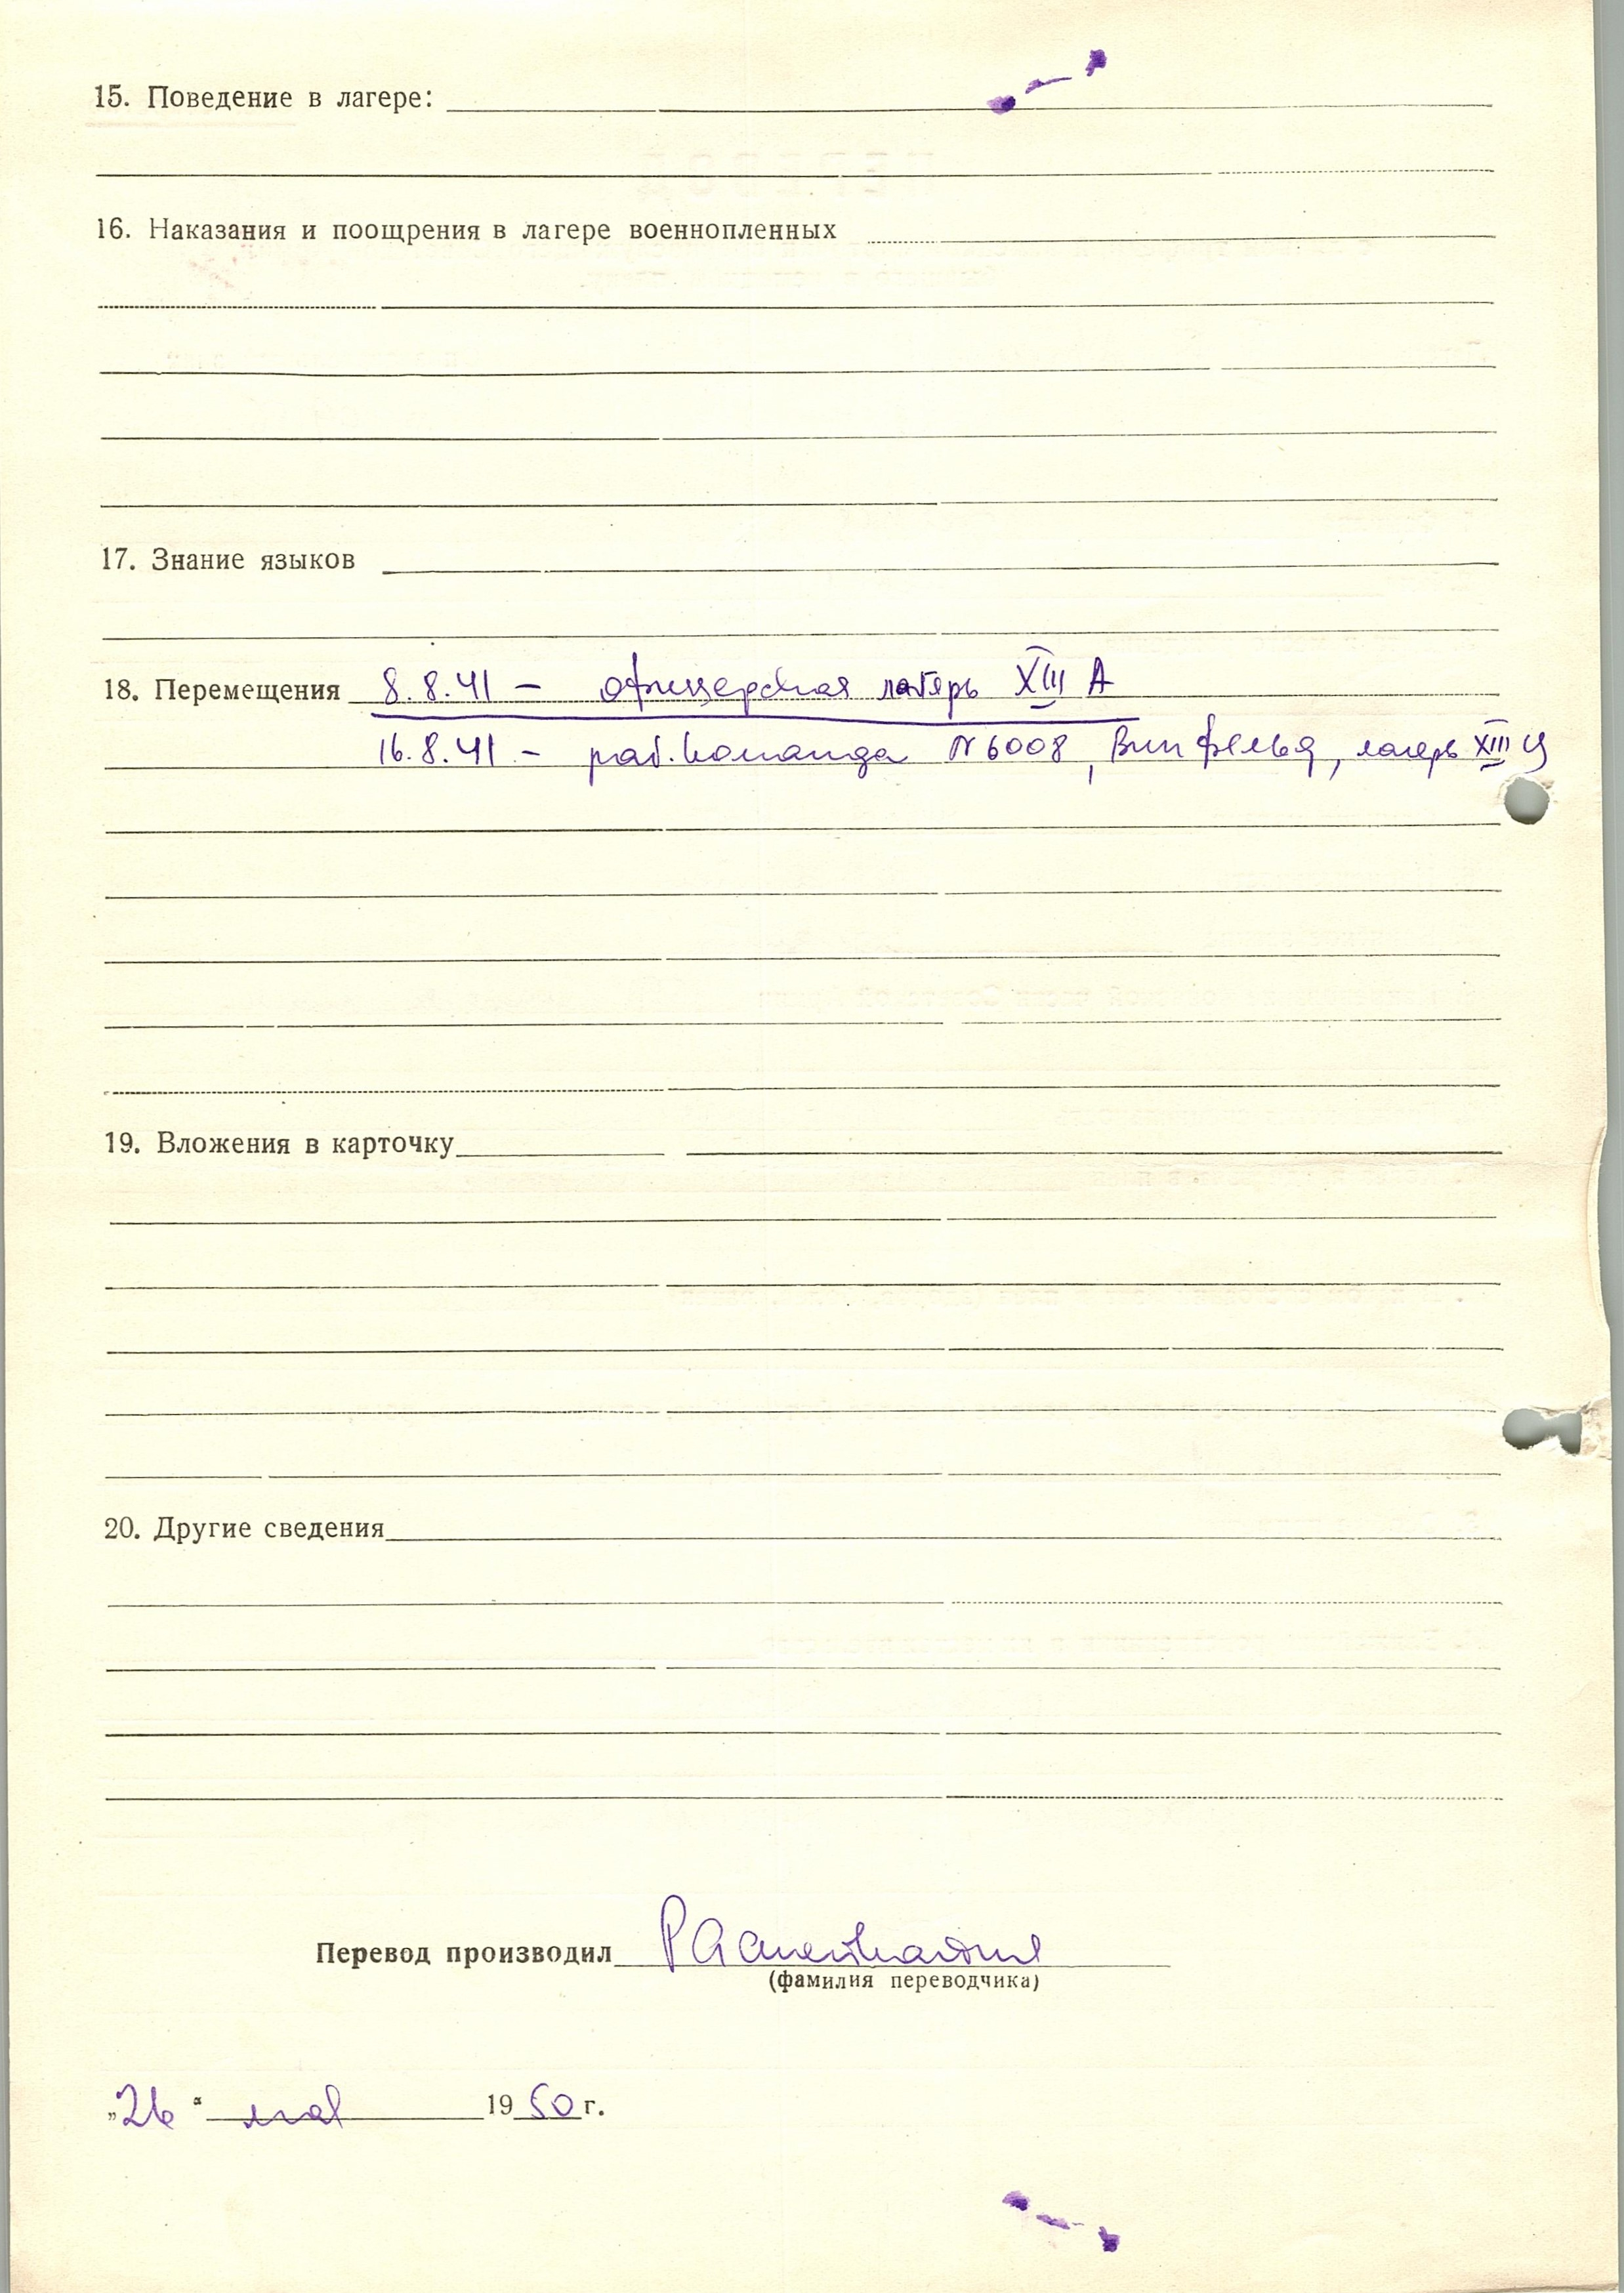 15. Поведение в лагере:
16. Наказания и поощрения в лагере военнопленных
17. Знание языков
18. Перемещения 8.8.41 – офицерская лагерь XIII А
16.8.41 – раб. команда N 6008, Випфельд, лагерь XIII Ц
19. Вложения в карточку
20. Другие сведения
Перевод производил
(фамилия переводчика)
„26“ мая 1950 г.